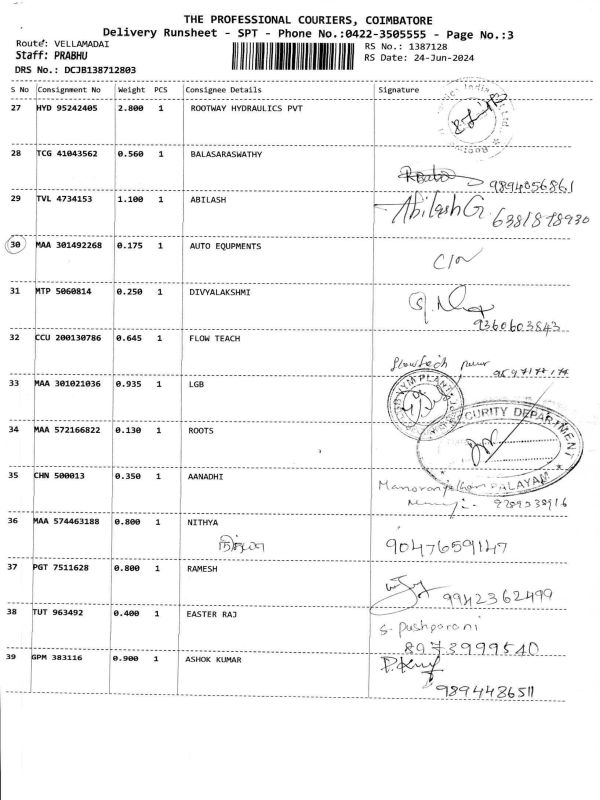 THE PROFESSIONAL COURIERS, COIMBATORE
Delivery Runsheet - SPT - Phone No.:0422-3505555 - Page No.:3
Route: VELLAMADAI RS No.: 1387128
Staff: PRABHU RS Date: 24-Jun-2024
DRS No.: DCJB138712803
S No Consignment No Weight PCS Consignee Details Signature
27 HYD 95242405 2.800 1 ROOTWAY HYDRAULICS PVT
28 TCG 41043562 0.560 1 BALASARASWATHY
9894056861
29 TVL 4734153 1.100 1 ABILASH
Abilash G. 6381878930
30 MAA 301492268 0.175 1 AUTO EQUPMENTS
31 MTP 5060814 0.250 1 DIVYALAKSHMI
9360603843
32 CCU 200130786 0.645 1 FLOW TEACH
flowtech
33 MAA 301021036 0.935 1 LGB
34 MAA 572166822 0.130 1 ROOTS
SECURITY DEPARTMENT
PALAYAM
35 CHN 500013 0.350 1 AANADHI
36 MAA 574463188 0.800 1 NITHYA
நித்யா 9047659147
37 PGT 7511628 0.800 1 RAMESH
9942362499
38 TUT 963492 0.400 1 EASTER RAJ
S. pushparani
8973999540
39 GPM 383116 0.900 1 ASHOK KUMAR
9894486511